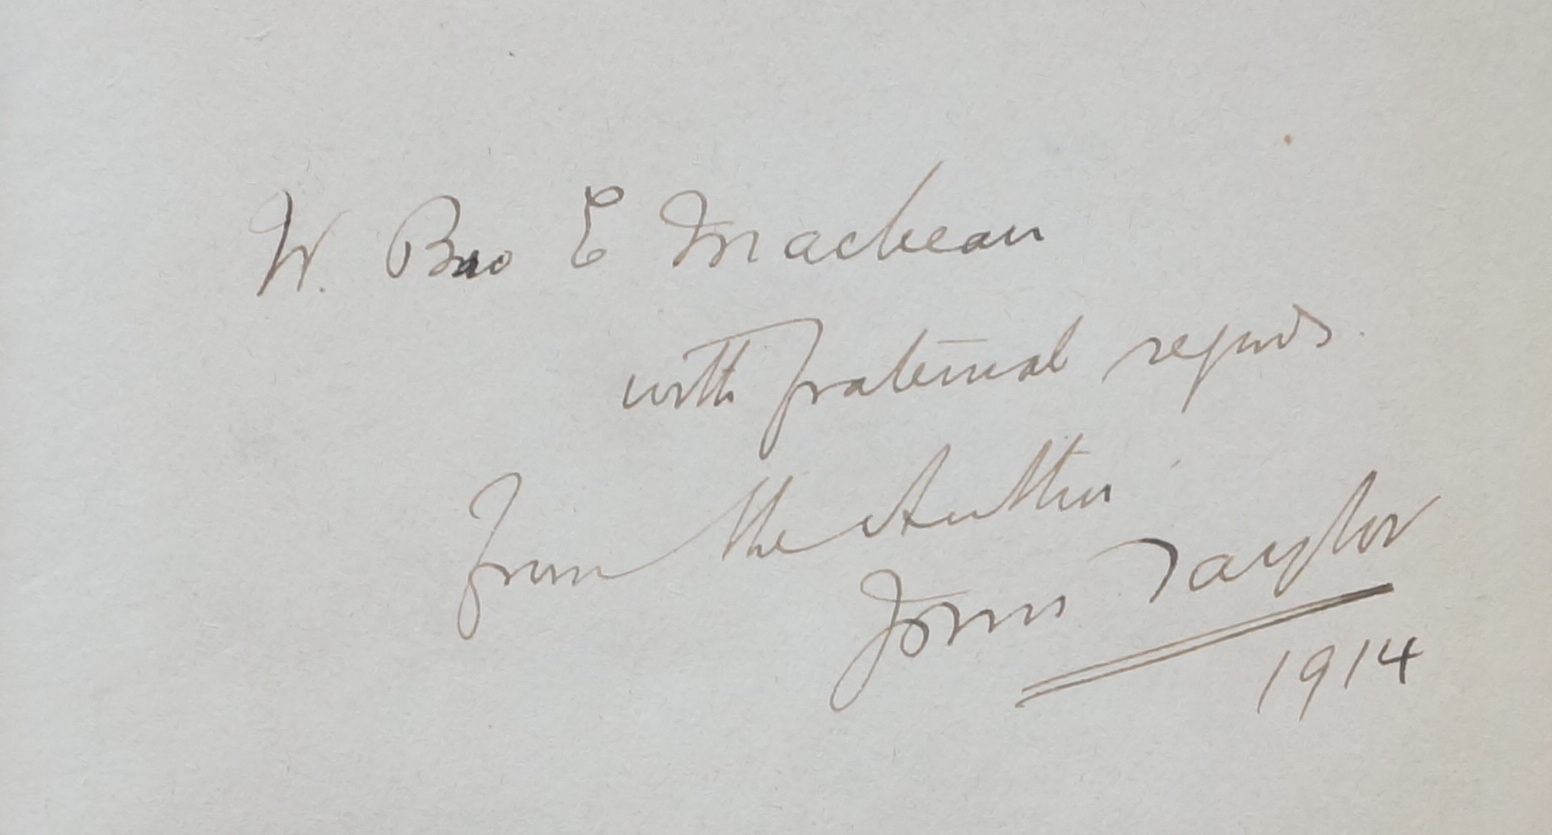 W. Bro E Macbean
with fraternal regards.
from the Author
John Taylor
1914